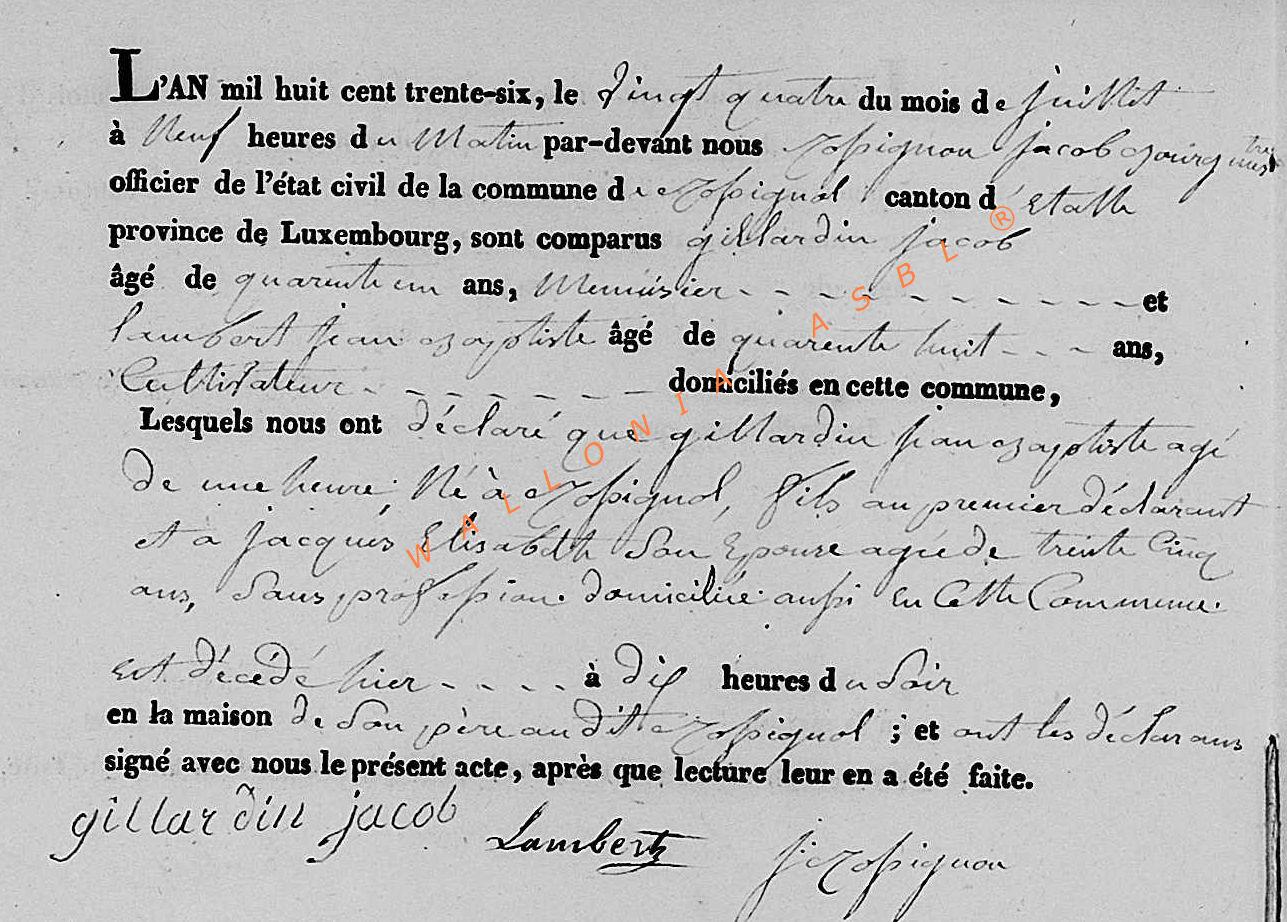 L'AN mil huit cent trente-six, le vingt quatre du mois de juillet
à Neuf heures du Matin par-devant nous Rossignon jacob Bourgmestre
officier de l'état civil de la commune de Rossignol canton d'Etalle
province de Luxembourg, sont comparus gillardin jacob
âgé de quarente un ans, Menuisier - - - - - - - - - - - - et
lambert jean Baptiste âgé de quarente huit - - - ans,
Cultivateur - - - - - - - domiciliés en cette commune,
Lesquels nous ont déclaré que gillardin jean Baptiste agé
de une heure Né à Rossignol, fils au premier déclarant
et a jacques Elisabeth son Epouse agée de trente Cinq
ans, sans profession domiciliée aussi en Cette Commune.
Est décédé hier - - - - à dix heures du soir
en la maison de son père audit Rossignol ; et ont les déclarans
signé avec nous le présent acte, après que lecture leur en a été faite.
gillardin jacob
Lambert
j. Rossignon
WALLONIA ASBL ®